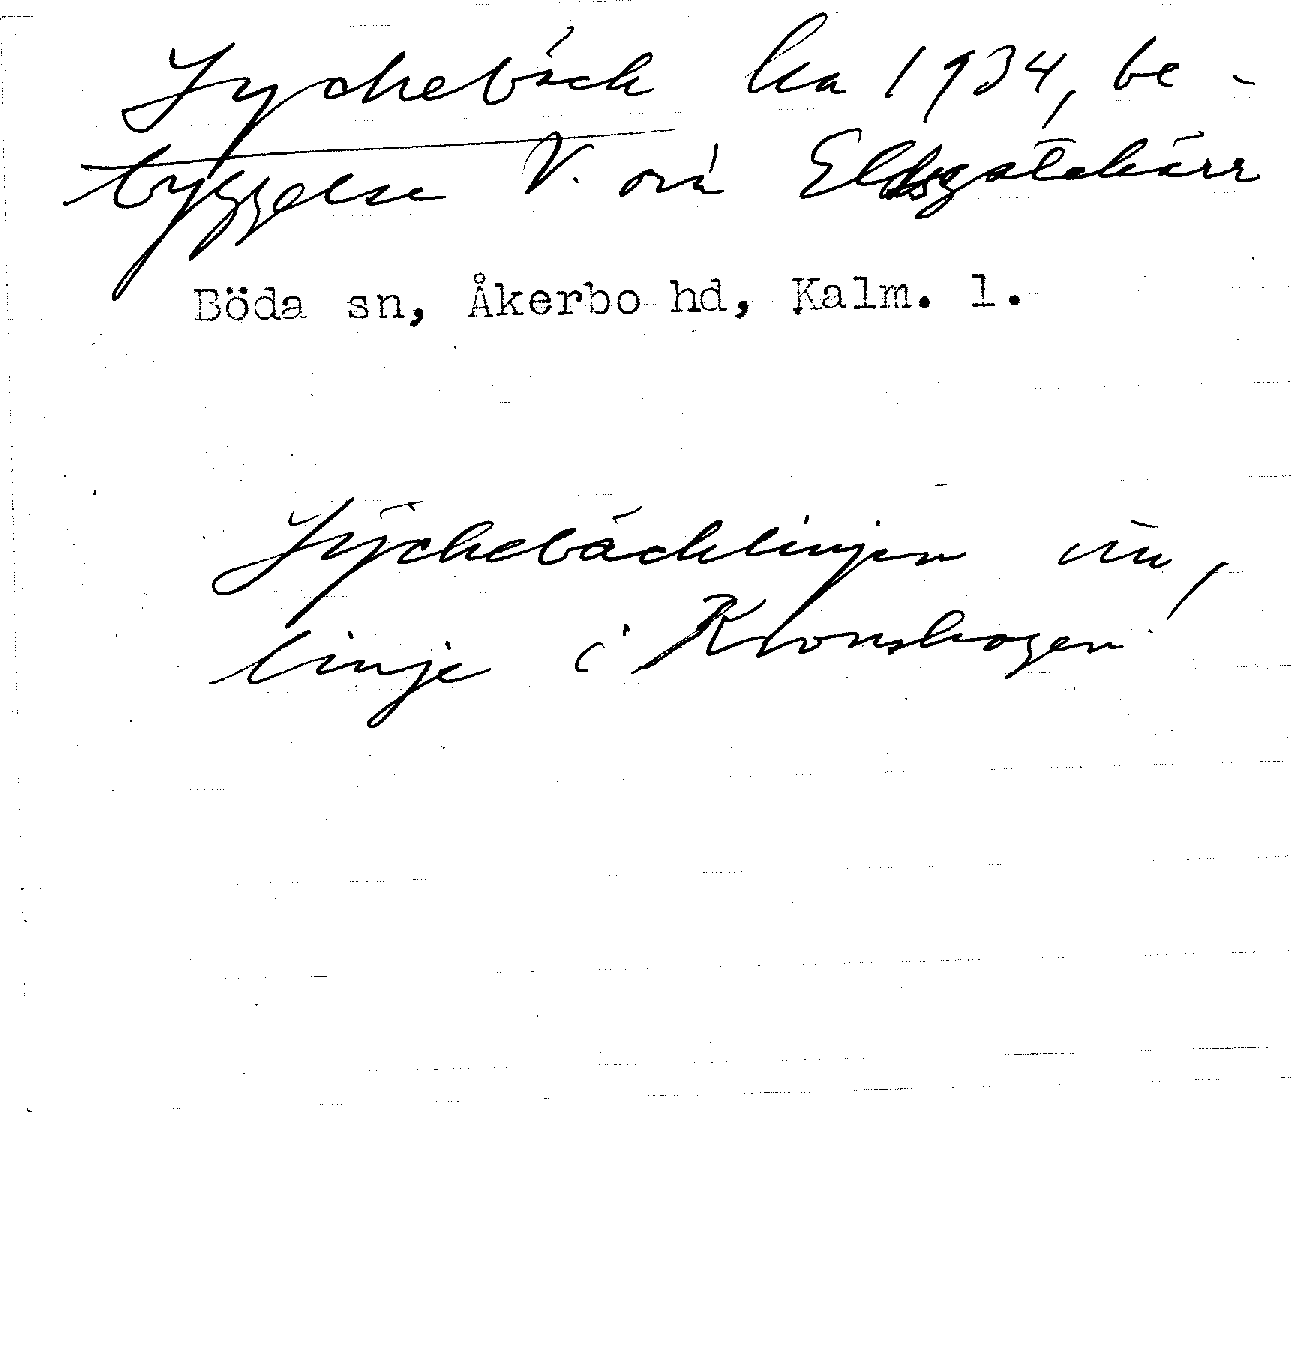 Lyckebäck ka 1934, be-
byggelse V. om Elkgatekärr
Böda sn, Åkerbo hd, Kalm. l.
Lyckebäcklinjen
linje i Kronskogen